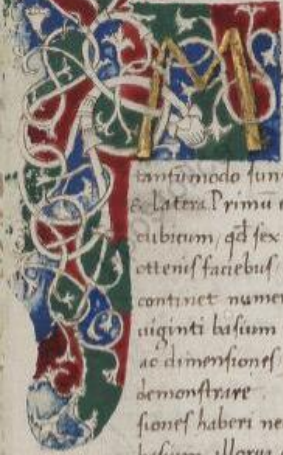 M
tansũmodo sunt
& latera. Primũ e
cubicum, qđ sex
ottenis faciebus
continet nume
uiginti basium
ac dimensiones
demonstrare.
siones haberi ne
basium illorum